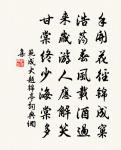 手開花徑錦成窠
浩蕩春風載酒過
來歲游人應解笑
甘棠終少海棠多
范成大題錦亭詞典網
集